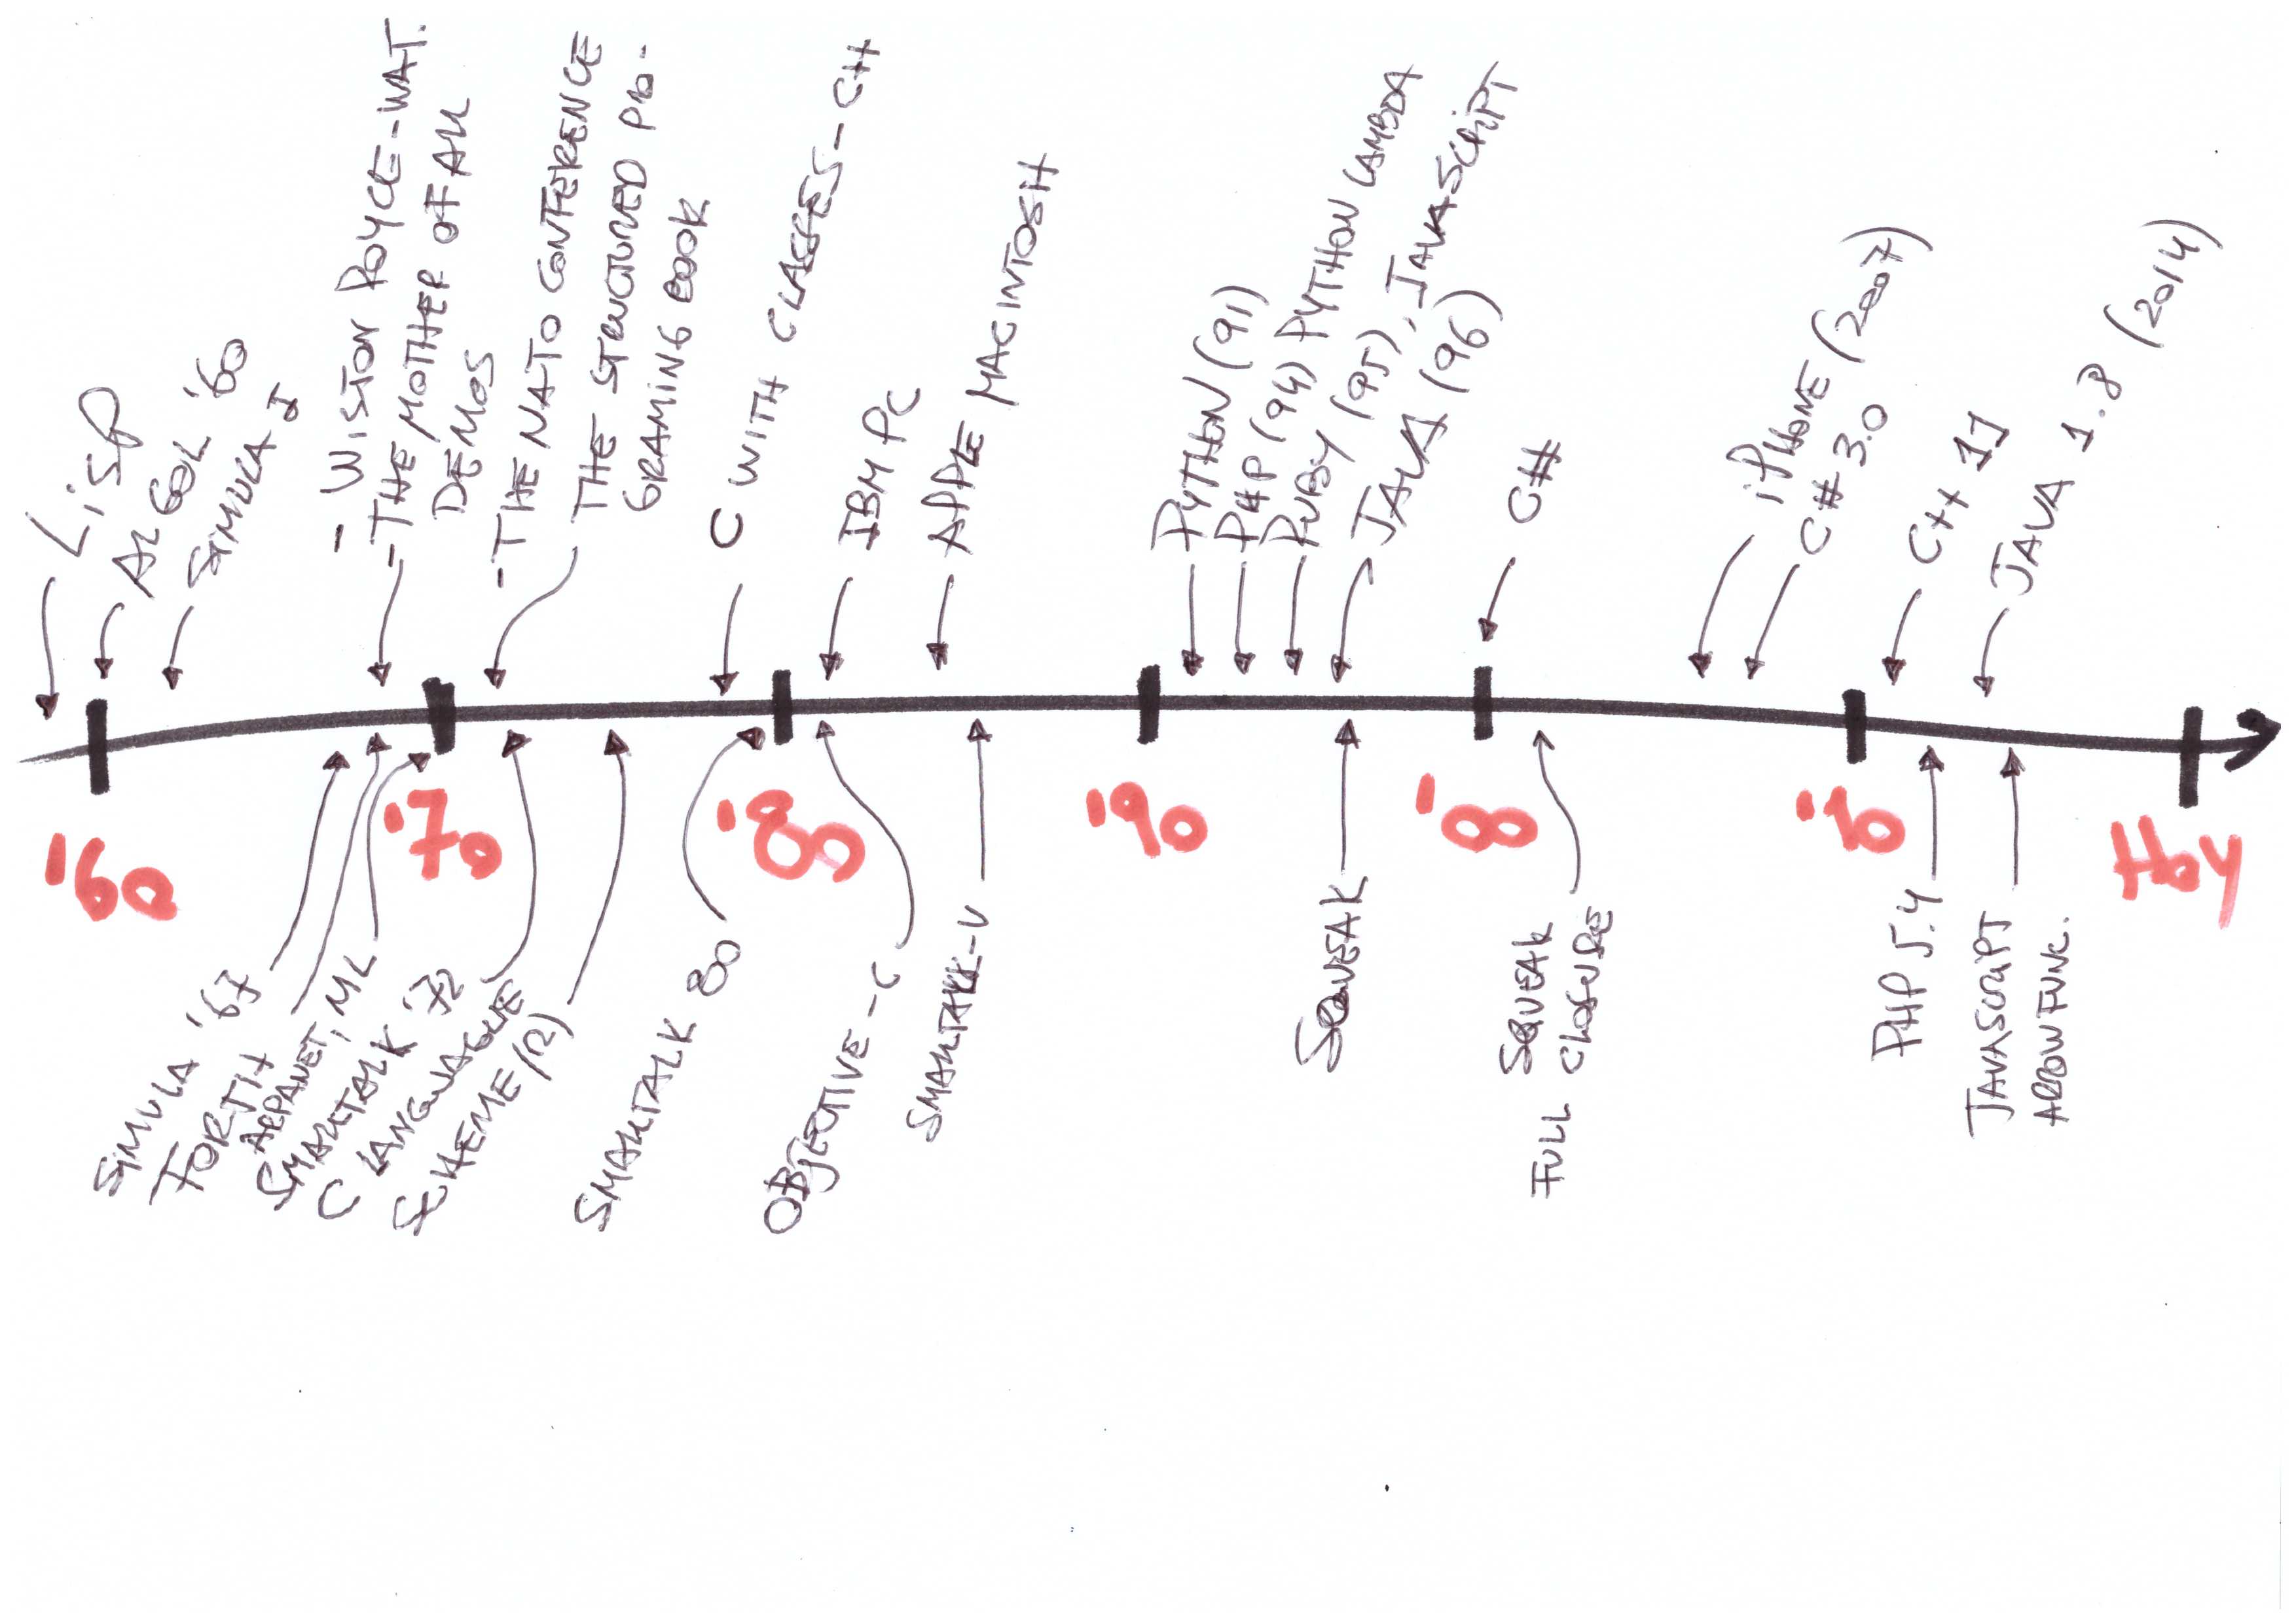 LISP
ALGOL '60
SIMULA I
- WISTON ROYCE-WAT.
- THE MOTHER OF ALL
DEMOS
- THE NATO CONFERENCE
THE STRUCTURED PRO-
GRAMING BOOK
C WITH CLASSES - C++
IBM PC
APPLE MACINTOSH
PYTHON (91)
PHP (94) PYTHON LAMBDA
RUBY (95), JAVASCRIPT
JAVA (96)
C#
iPHONE (2007)
C# 3.0
C++ 11
JAVA 1.8 (2014)
'60
'70
'80
'90
'00
'10
Hoy
SIMULA '67
FORTH
ARPANET, ML
SMALLTALK '72
C LANGUAGUE
SCHEME (R)
SMALLTALK 80
OBJECTIVE-C
SMALLTALK-V
SQUEAK
SQUEAK
FULL CLOSURE
PHP 5.4
JAVASCRIPT
ARROW FUNC.